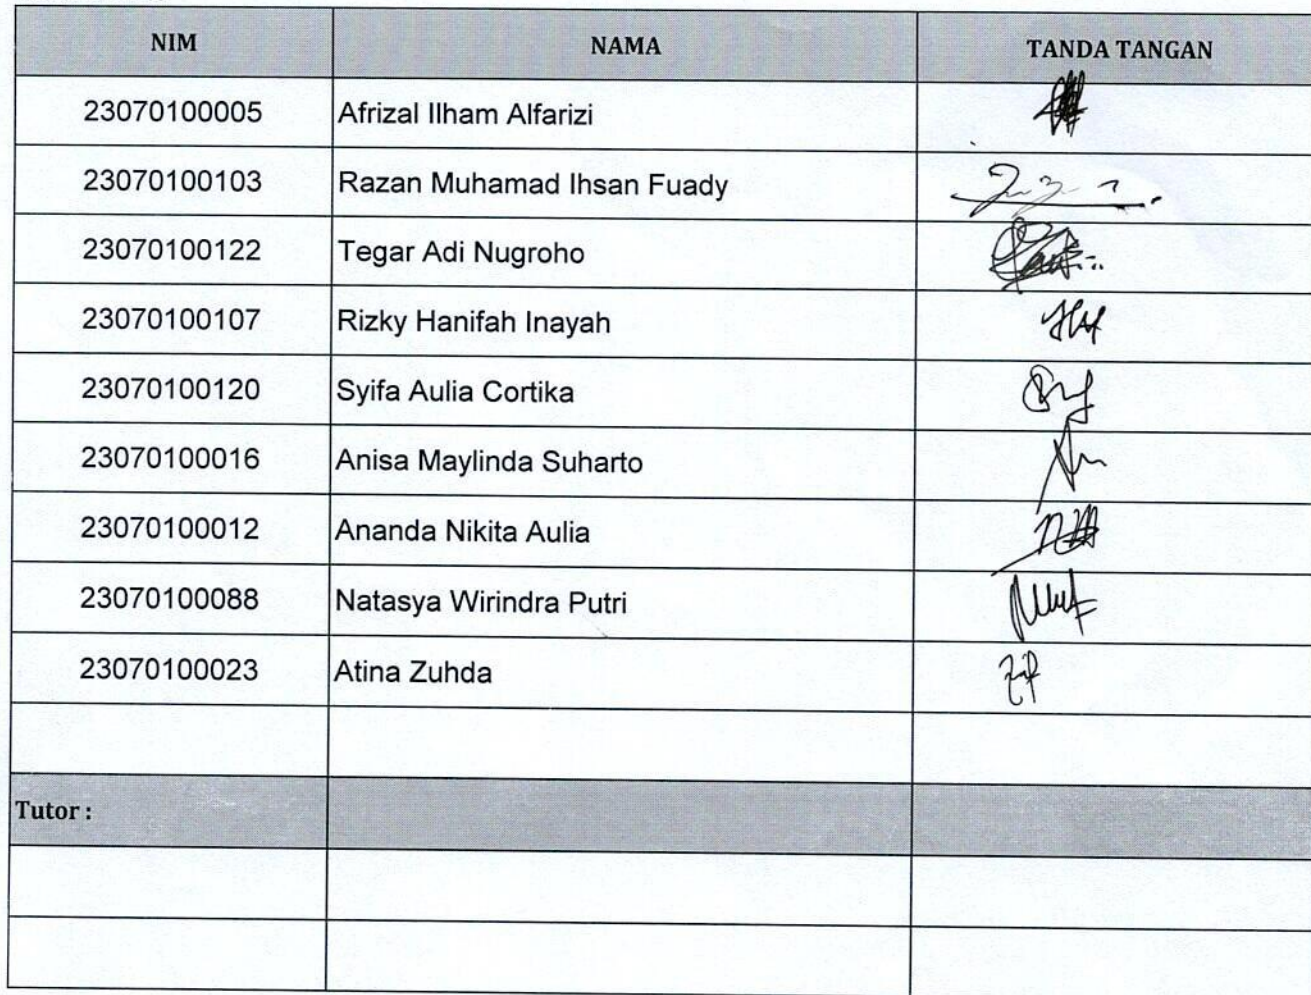 NIM NAMA TANDA TANGAN
23070100005 Afrizal Ilham Alfarizi
23070100103 Razan Muhamad Ihsan Fuady
23070100122 Tegar Adi Nugroho
23070100107 Rizky Hanifah Inayah
23070100120 Syifa Aulia Cortika
23070100016 Anisa Maylinda Suharto
23070100012 Ananda Nikita Aulia
23070100088 Natasya Wirindra Putri
23070100023 Atina Zuhda
Tutor :